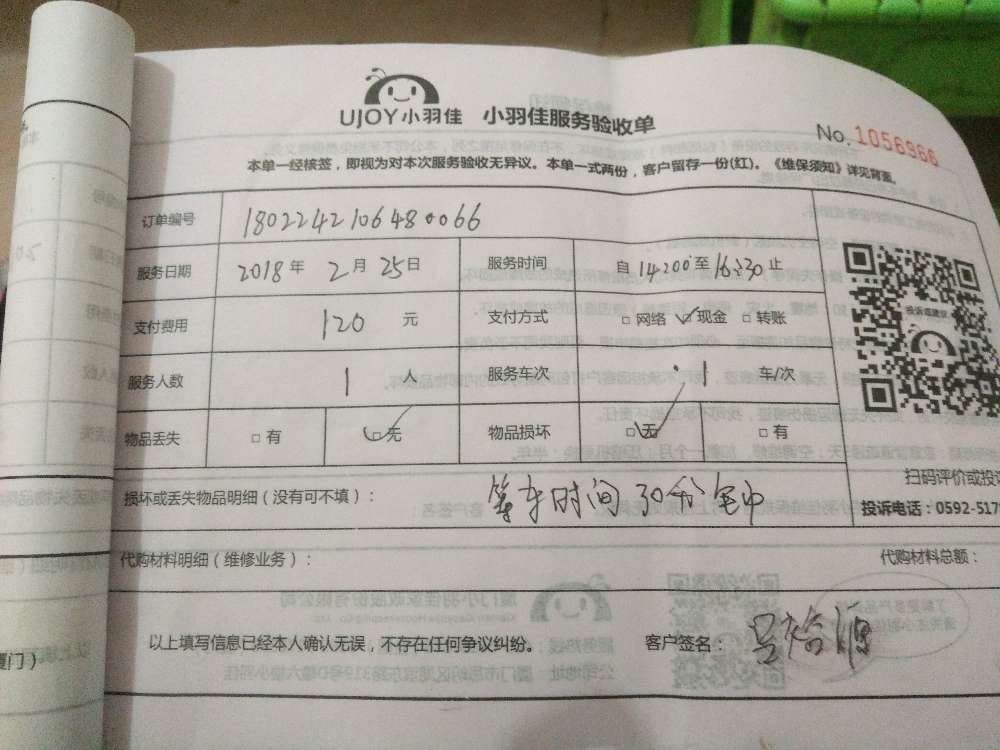 UJOY小羽佳 小羽佳服务验收单
No. 1056966
本单一经核签，即视为对本次服务验收无异议。本单一式两份，客户留存一份(红)。《维保须知》详见背面。
订单编号 1802242106480066
服务日期 2018年 2月 25日 服务时间 自 14:00 至 16:30 止
支付费用 120 元 支付方式 □网络 ☑现金 □转账
服务人数 1 人 服务车次 1 车/次
物品丢失 □有 ☑无 物品损坏 ☑无 □有
扫码评价或投
损坏或丢失物品明细（没有可不填）： 等车时间30分钟
投诉电话：0592-517
代购材料明细（维修业务）： 代购材料总额：
以上填写信息已经本人确认无误，不存在任何争议纠纷。 客户签名：
厦门）